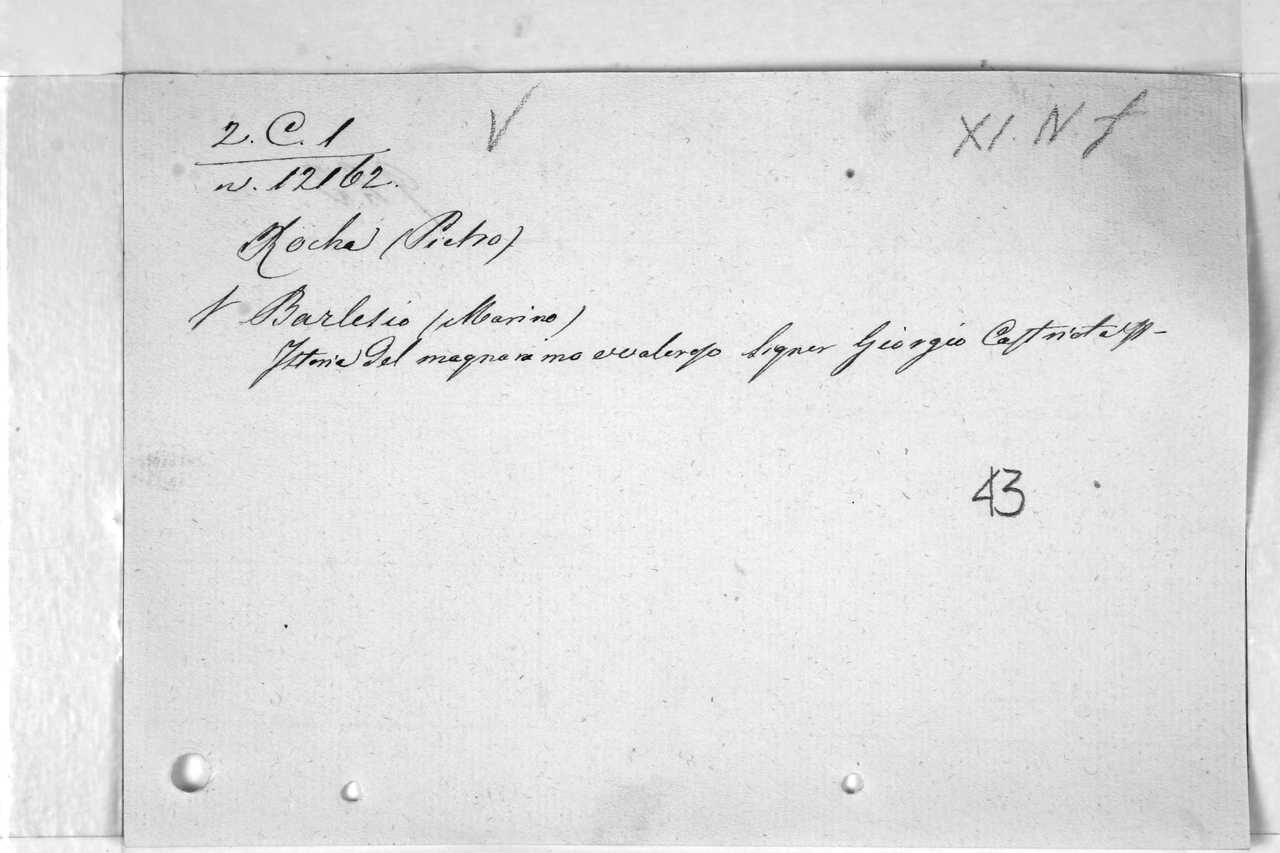 2. C. 1
V
XI. N f
n. 12162.
Rocha (Pietro)
V Barlesio (Marino)
Istoria del magnanimo e valoroso Signor Giorgio Castriota
43